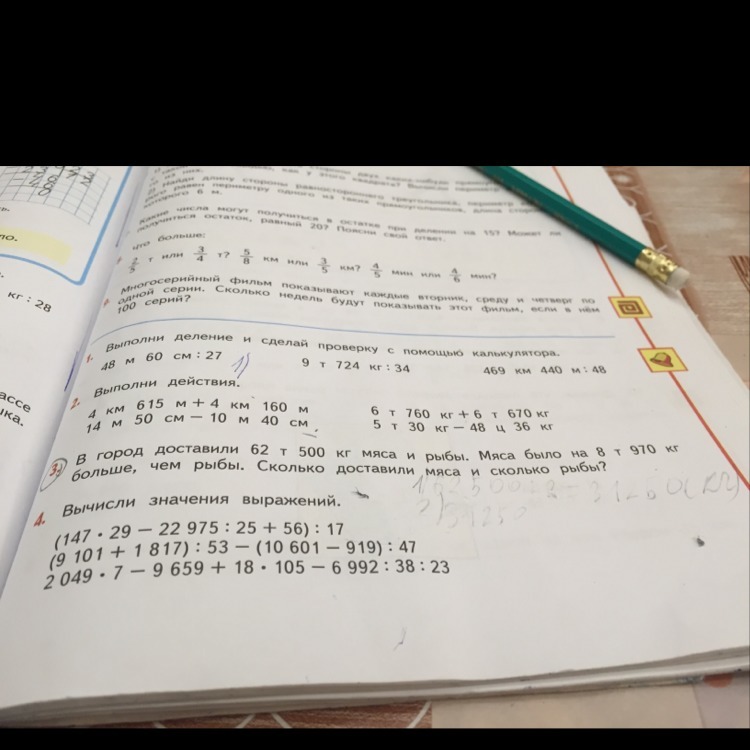 кг : 28
2) Найди длину стороны равностороннего треугольника, периметр
рого равен периметру одного из таких прямоугольников, длина
которого 6 м.
Какие числа могут получиться в остатке при делении на 15? Может ли
получиться остаток, равный 20? Поясни свой ответ.
Что больше:
2/5 т или 3/4 т? 5/8 км или 3/5 км? 4/5 мин или 4/6 мин?
Многосерийный фильм показывают каждые вторник, среду и четверг по
одной серии. Сколько недель будут показывать этот фильм, если в нём
100 серий?
1. Выполни деление и сделай проверку с помощью калькулятора.
48 м 60 см : 27 1) 9 т 724 кг : 34 469 км 440 м : 48
2. Выполни действия.
4 км 615 м + 4 км 160 м 6 т 760 кг + 6 т 670 кг
14 м 50 см − 10 м 40 см 5 т 30 кг − 48 ц 36 кг
3. В город доставили 62 т 500 кг мяса и рыбы. Мяса было на 8 т 970 кг
больше, чем рыбы. Сколько доставили мяса и сколько рыбы?
4. Вычисли значения выражений.
(147 · 29 − 22 975 : 25 + 56) : 17
(9 101 + 1 817) : 53 − (10 601 − 919) : 47
2 049 · 7 − 9 659 + 18 · 105 − 6 992 : 38 : 23